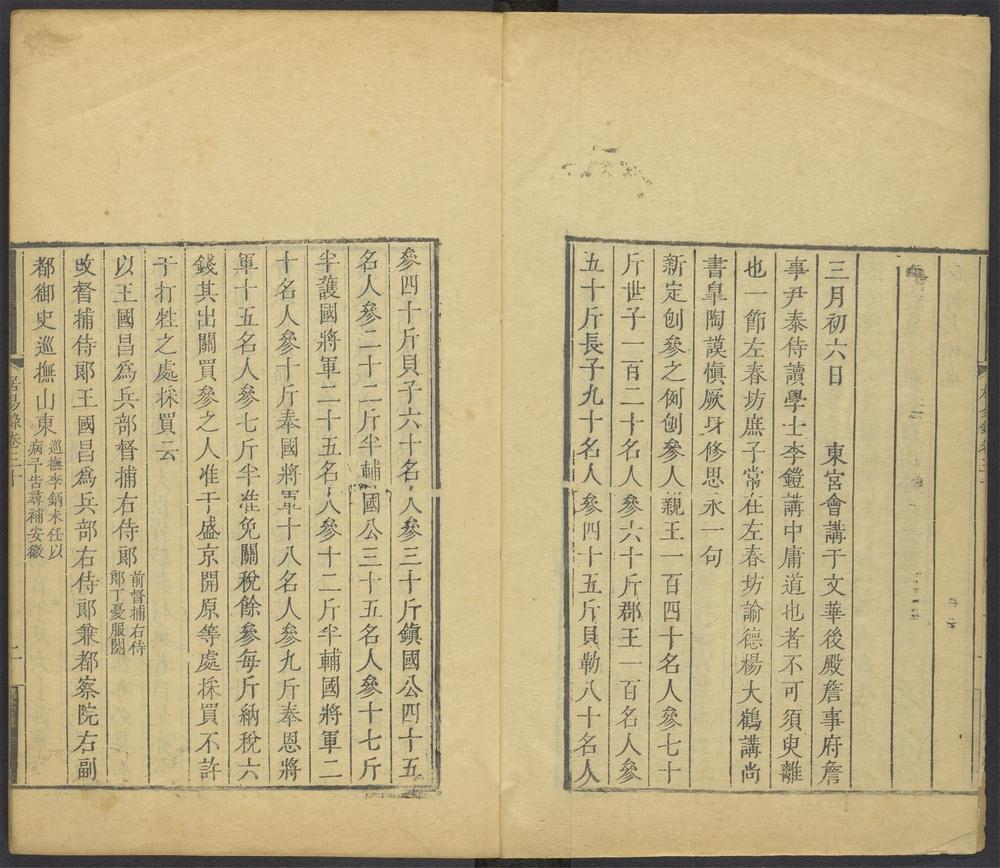 三月初六日　東宮會講于文華後殿詹事府詹
事尹泰侍讀學士李鎧講中庸道也者不可須臾離
也一節左春坊庶子常在左春坊諭德楊大鶴講尚
書臯陶謨慎厥身修思永一句
新定刨參之例刨參人親王一百四十名人參七十
斤世子一百二十名人參六十斤郡王一百名人參
五十斤長子九十名人參四十五斤貝勒八十名人
參四十斤貝子六十名人參三十斤鎮國公四十五
名人參二十二斤半輔國公三十五名人參十七斤
半護國將軍二十五名人參十二斤半輔國將軍二
十名人參十斤奉國將軍十八名人參九斤奉恩將
軍十五名人參七斤半准免關稅餘參每斤納稅六
錢其出關買參之人准于盛京開原等處採買不許
于打牲之處採買云
以王國昌爲兵部督捕右侍郎前督捕右侍郎丁憂服闋
改督捕侍郎王國昌爲兵部右侍郎兼都察院右副
都御史巡撫山東巡撫李鈵未任以病予告尋補安徽
居易錄卷三十
二